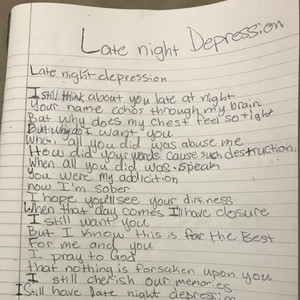 Late night Depression
Late night depression
I still think about you late at night
Your name echos through my brain
But why does my chest feel so tight
But why do I want you
When all you did was abuse me
How did your words cause such destruction.
When all you did was speak
You were my addicition
now I'm sober
I hope you'll see your dirtiness
When that day comes I'll have closure
I still want you
But I know this is for the Best
For me and you
I pray to God
that nothing is forsaken upon you
I still cherish our memories
I Still have late night depression